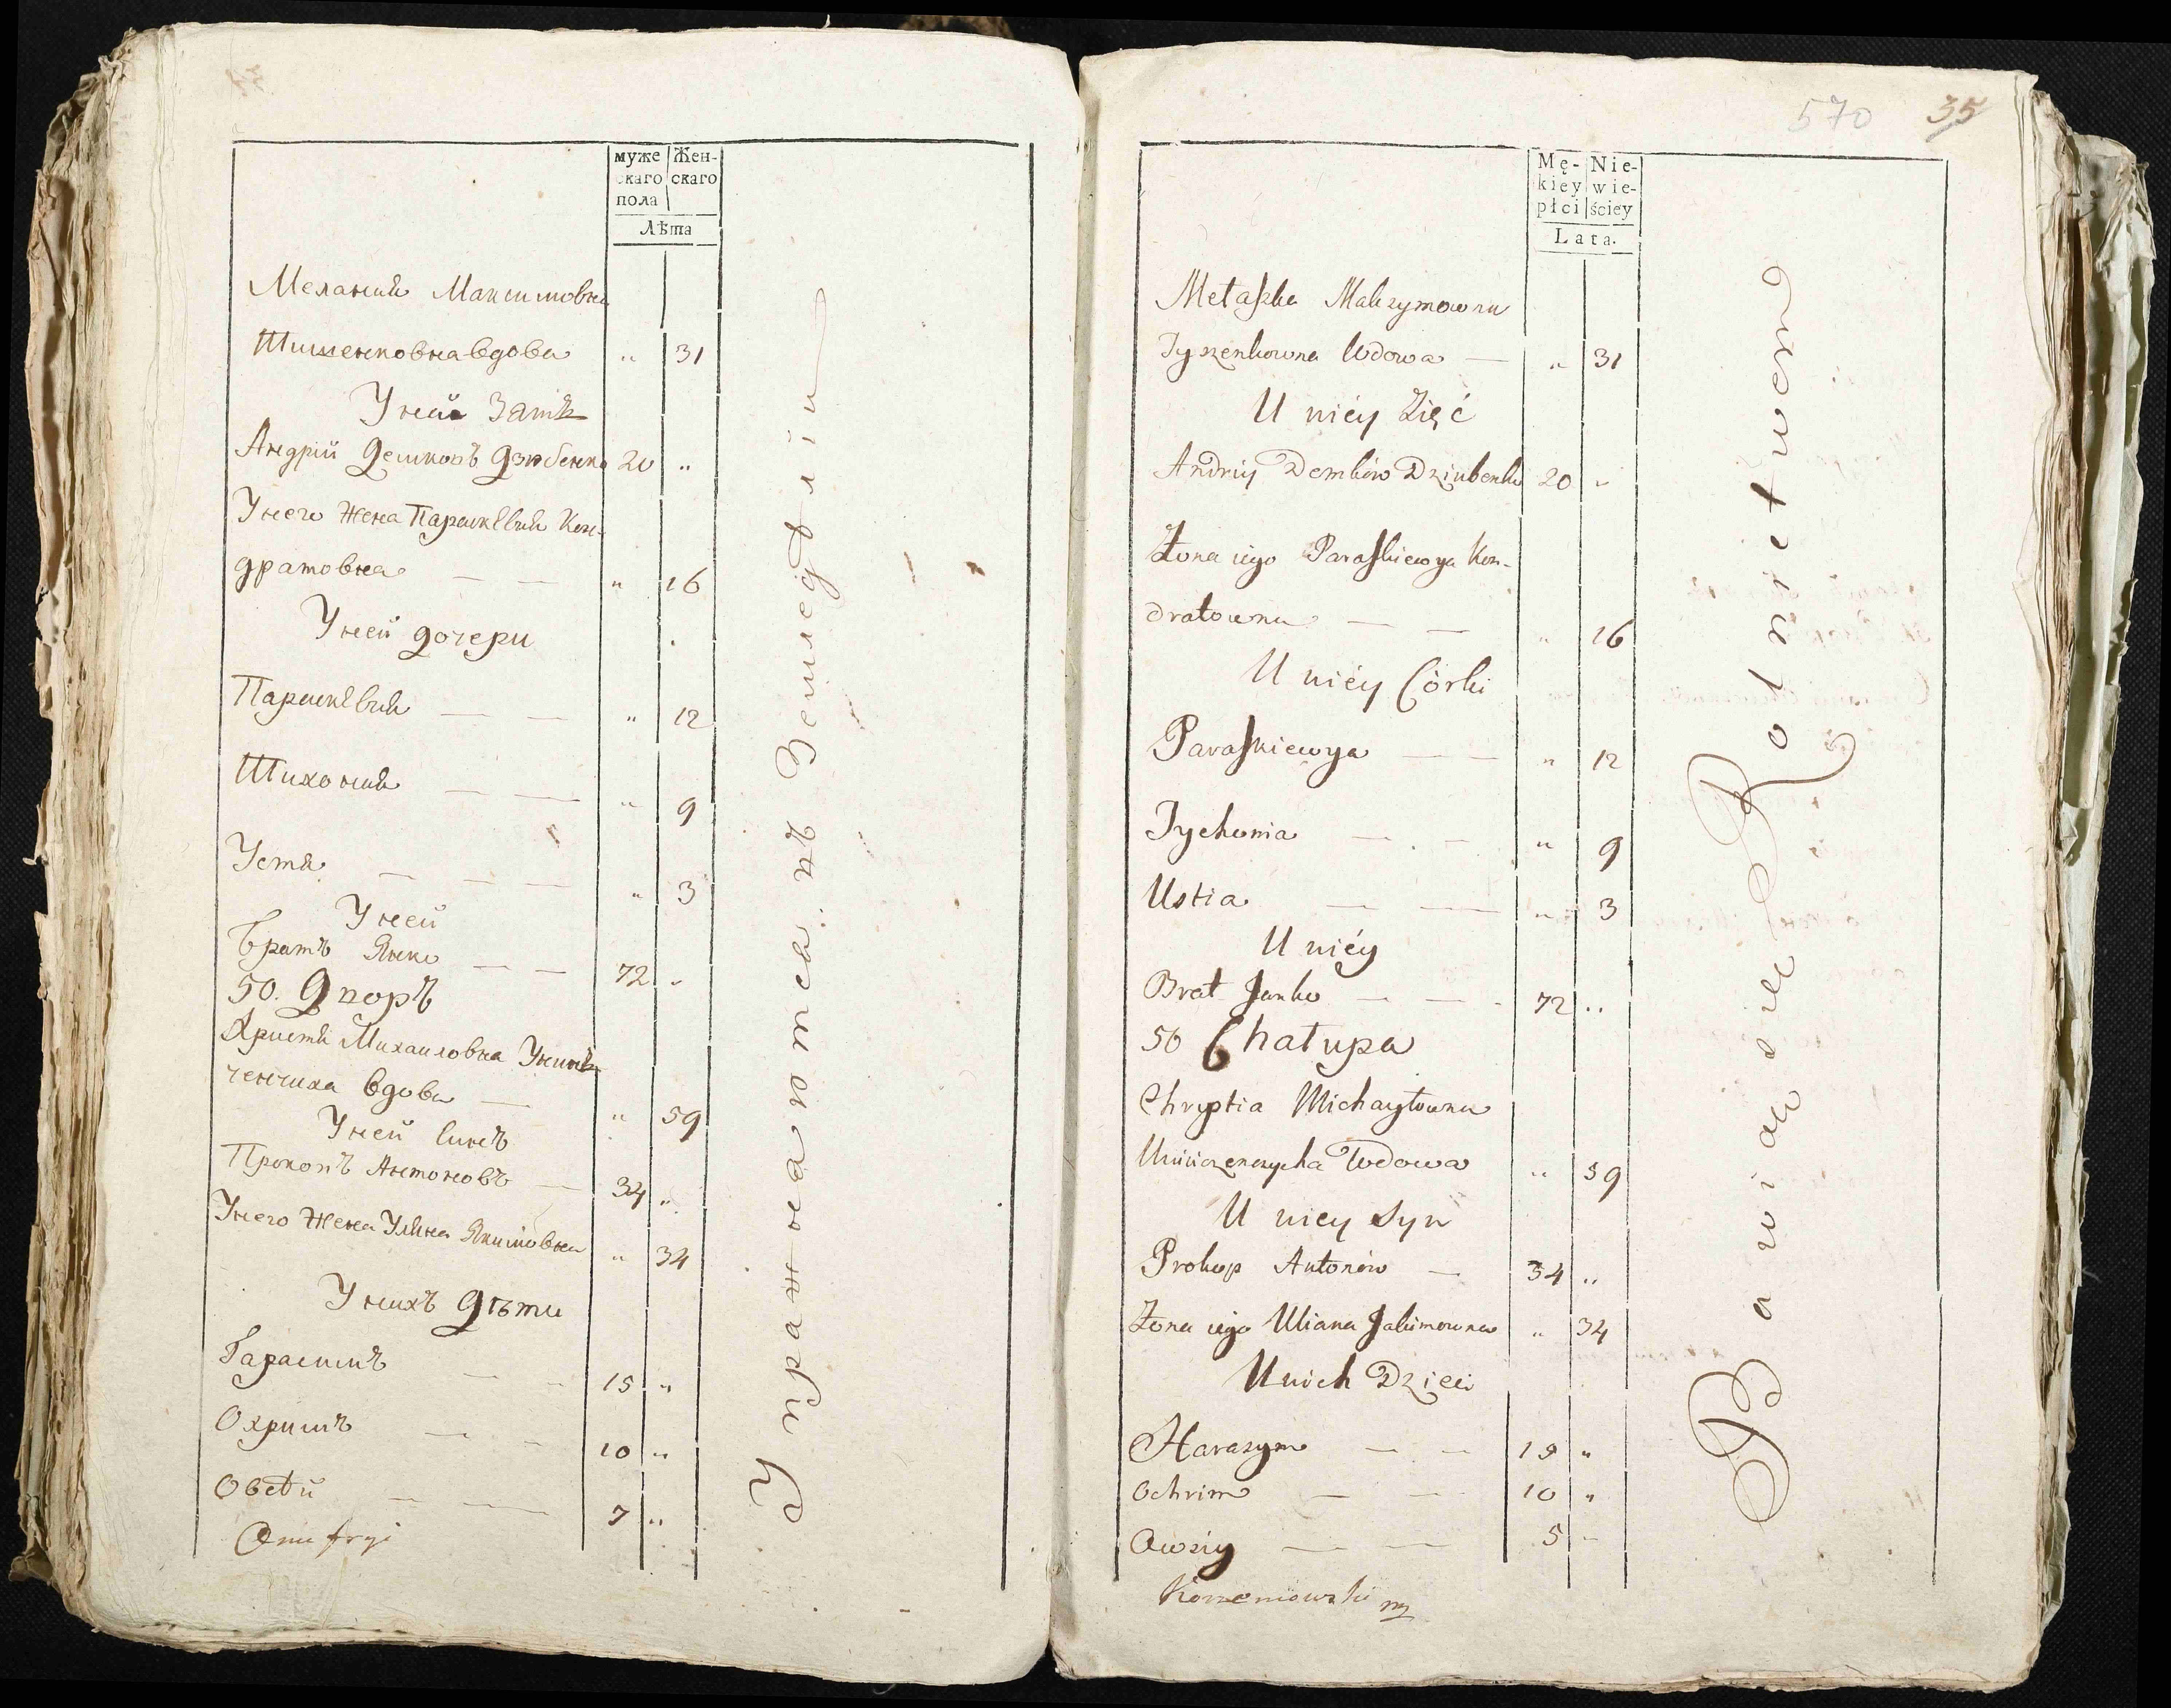 муже Жен-
скаго скаго
пола
Лѣта
Мелания Максимовна
Тишенковна вдова " 31
У ней Зять
Андрій Демковъ Дзюбенко 20 "
У него жена Парасквия Кон-
дратовна — — " 16
У ней дочери
Парасквия — — " 12
Тихония — — " 9
Устя — — — " 3
У ней
Братъ Янко — — 72 "
50. Дворъ
Христя Михаиловна
ченчиха вдова — " 59
У ней синъ
Прокопъ Антоновъ — 34 "
У него жена Уляна Якимовна " 34
У нихъ дѣти
Гарасимъ — — 15 "
Охримъ — — 10 "
Овсѣй — — 7 "
Onufryi
Упражнаются въ Земледѣліи
570 35
Mę- Nie-
kiey wie-
płci ściey
Lata.
Małaszka Maksymowna
Tyszenkowna Wdowa — " 31
U niéy Zięć
Andriy Demków Dziubenko 20 "
Żona iego Paraskiewya Kon-
dratowna — — " 16
U niéy Córki
Paraskiewya — — " 12
Tychonia — — " 9
Ustia — — " 3
U niéy
Brat Janko — — - 72 "
50 Chałupa
Chrystia Michayłowna
Wdowa " 59
U niey Syn
Prokop Antonów — 34 "
Żona iego Uliana Jakimowna " 34
U nich Dzieci
Harasym — — 15 "
Ochrim — — 10 "
Owsiy — — 5 "
Korzeniowski mp
Bawią się Rolnictwem